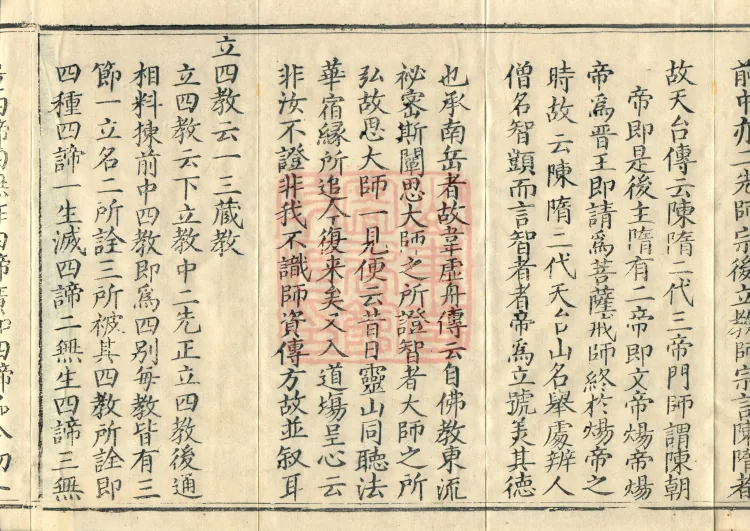 前中亦二先師宗後立教師宗言陳隋者
故天台傳云陳隋二代三帝門師謂陳朝
帝即是後主隋有二帝即文帝煬帝煬
帝爲晋王即請爲菩薩戒師終於煬帝之
時故云陳隋二代天台山名舉處辨人
僧名智顗而言智者者帝爲立號美其德
也承南岳者故韋虛舟傳云自佛教東流
祕密斯闡思大師之所證智者大師之所
弘故思大師一見便云昔日靈山同聽法
華宿緣所追今復来矣又入道塲呈心云
非汝不證非我不識師資傳方故並叙耳
立四教云一三藏教
立四教云下立教中二先正立四教後通
相料揀前中四教即爲四別每教皆有三
節一立名二所詮三所被其四教所詮即
四種四諦一生滅四諦二無生四諦三無